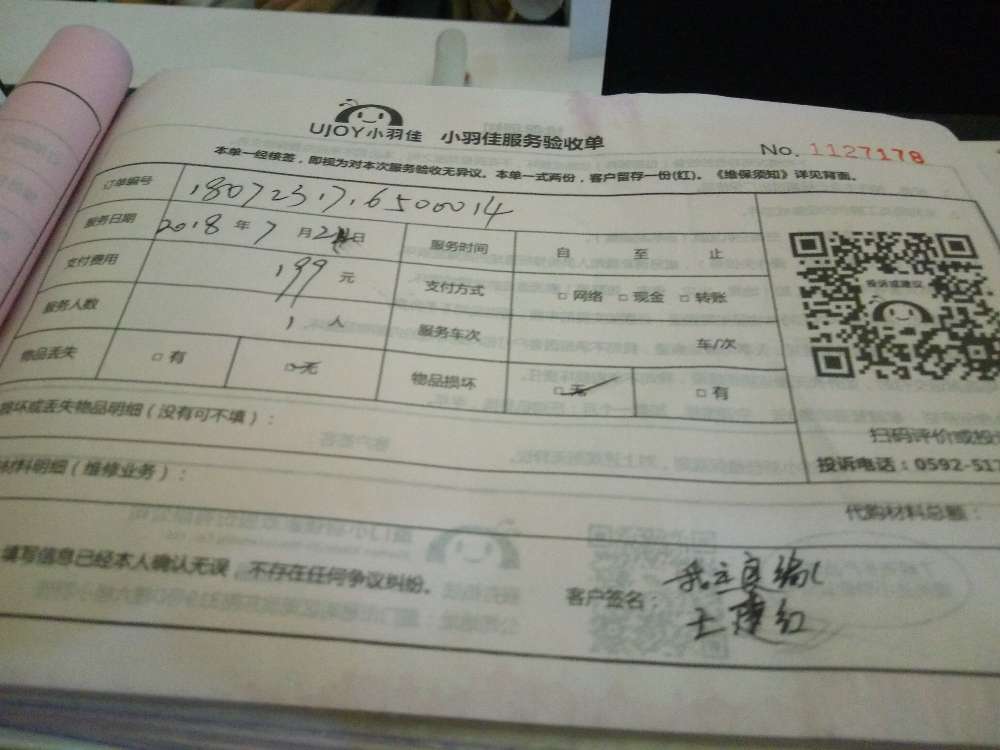 UJOY小羽佳 小羽佳服务验收单
No. 1127178
本单一经核签，即视为对本次服务验收无异议。本单一式两份，客户留存一份(红)。《维保须知》详见背面。
订单编号 18072317,6500014
服务日期 2018 年 7 月 日 服务时间 自 至 止
支付费用 199 元 支付方式 □ 网络 □ 现金 □ 转账
服务人数 1 人 服务车次 车/次
物品丢失 □ 有 □ 无 物品损坏 □ 无 □ 有
投诉或建议
扫码评价或投
投诉电话：0592-517
损坏或丢失物品明细（没有可不填）：
材料明细（维修业务）：
代购材料总额：
填写信息已经本人确认无误，不存在任何争议纠纷。
客户签名：